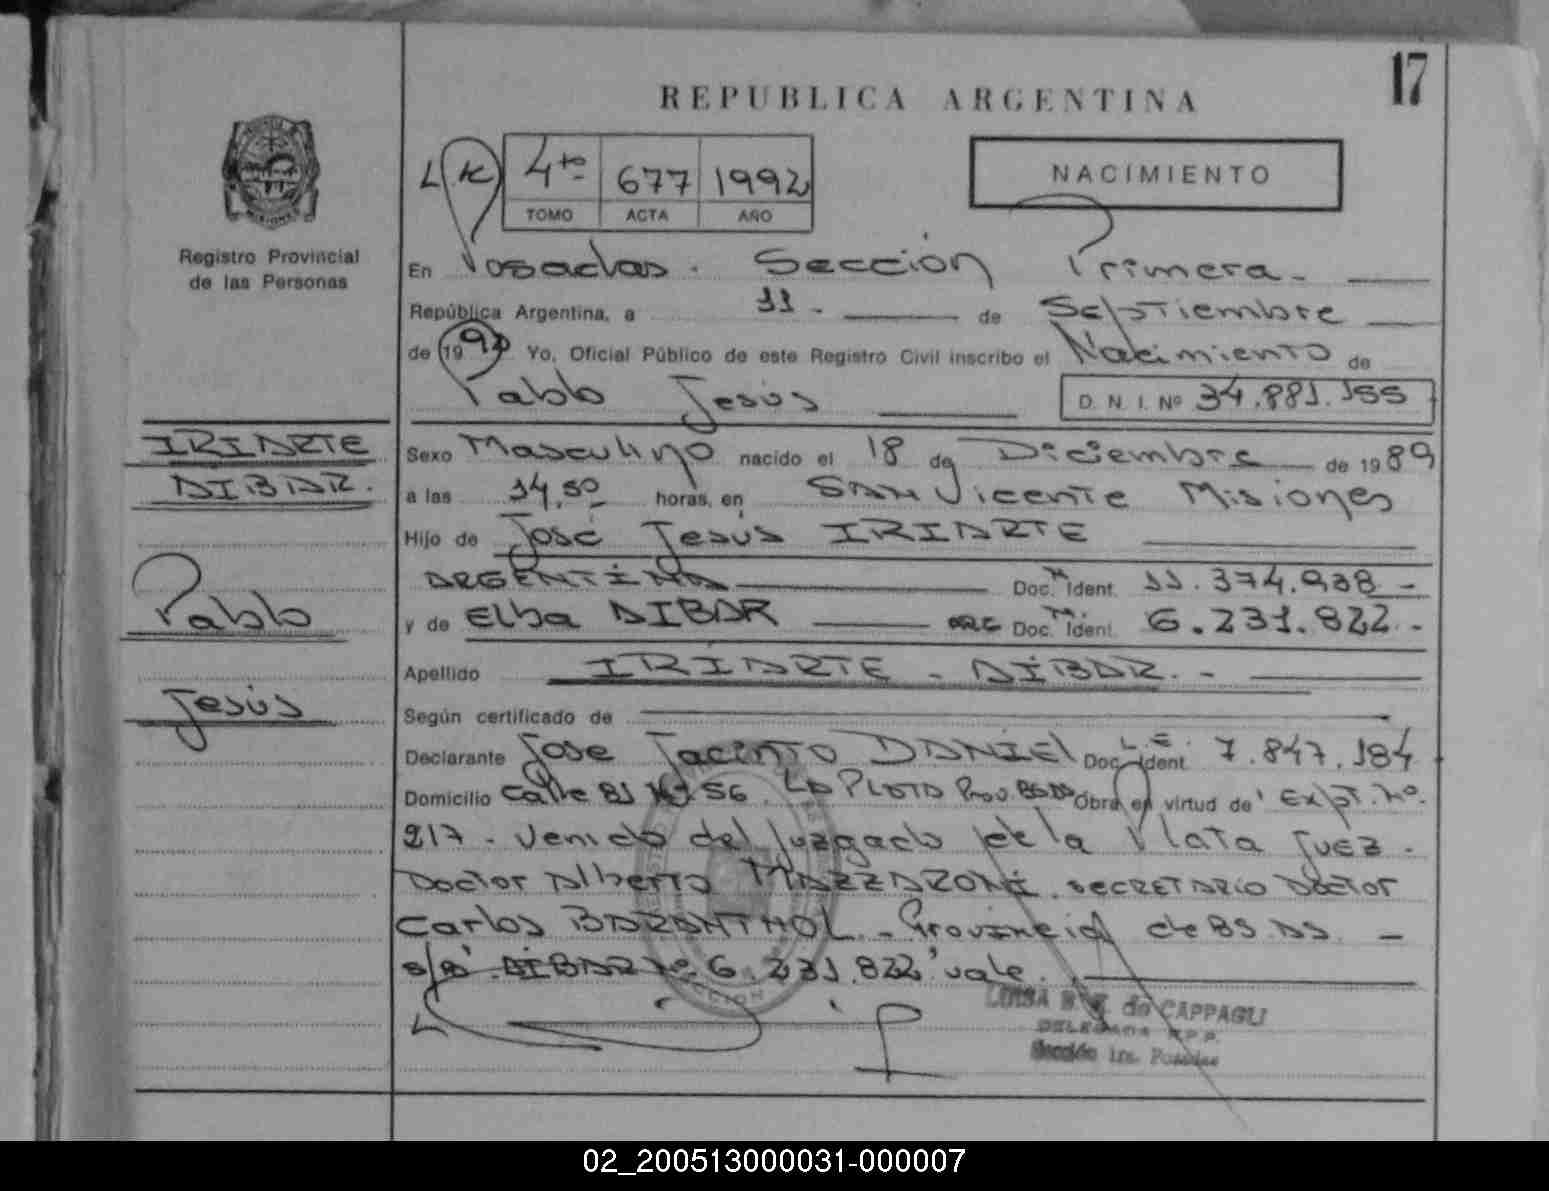 17
REPUBLICA ARGENTINA
4to 677 1992
TOMO ACTA AÑO
NACIMIENTO
Registro Provincial
de las Personas
En Posadas. Sección Primera.
República Argentina, a 11 de Septiembre
de 1992 Yo, Oficial Público de este Registro Civil inscribo el Nacimiento de
Pablo Jesús D. N. I. Nº 34.881.155
IRIARTE
DIBAR.
Pablo
Jesús
Sexo Masculino nacido el 18 de Diciembre de 1989
a las 14,50 horas, en SAN Vicente Misiones
Hijo de José Jesús IRIARTE
ARGENTINA Doc. Ident. 11.374.938-
y de Elba DIBAR ARG Doc. Ident. 6.231.822.-
Apellido IRIARTE - DIBAR.-
Según certificado de
Declarante José Jacinto DANIEL Doc. Ident. L.E. 7.847.184
Domicilio Calle 81 Nº 56. LA PLATA Prov. BSAS Obra en virtud de Expt. Nº.
217. Venido del Juzgado de la Plata Juez.
Doctor Alberto secretario Doctor
Carlos Provincia de BS.AS. -
s/r DIBAR Nº 6.231.822 vale.
de CAPPAGLI
DELEGADA R.P.P.
Sección 1ra. Posadas
02_200513000031-000007